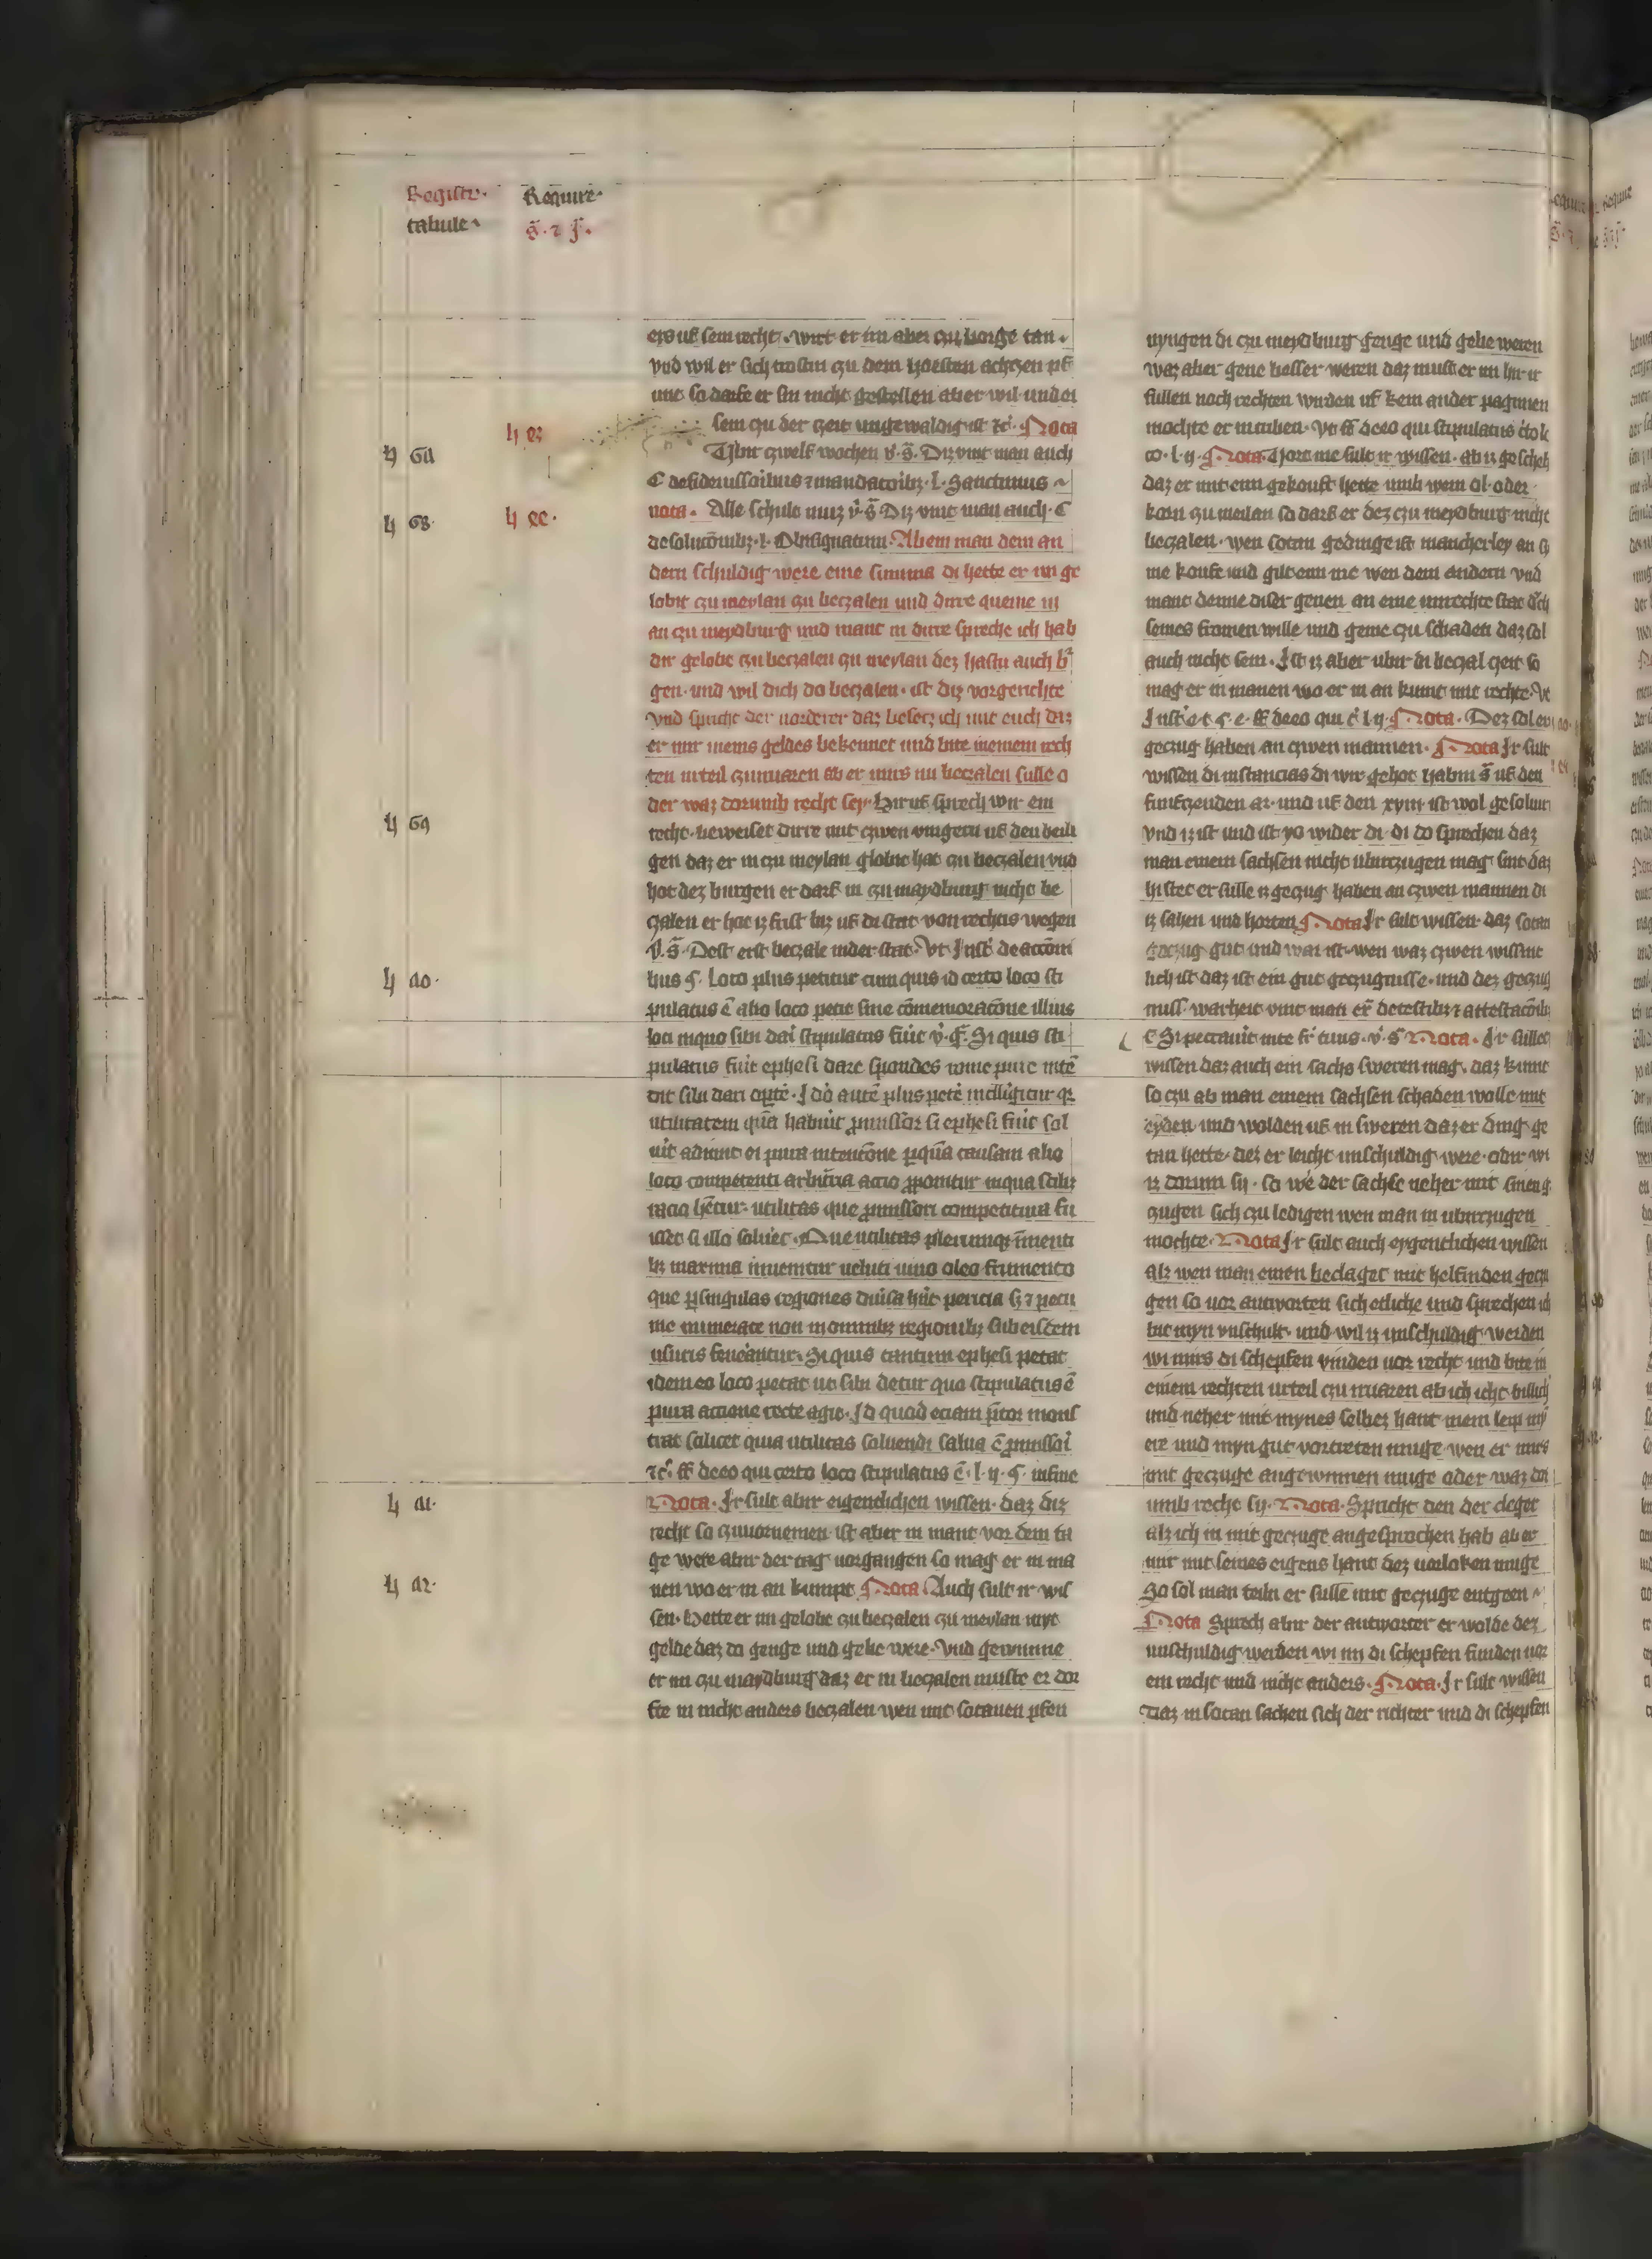 Registr.
tabule.
Require.
g̃. ⁊ ꝭ.
ers uf sein recht. wirt er im aber czu borge tan.
vnd wil er sich trostin czu dem hoesten achczen pf
unt so darfe er sin nicht gestellen aber wil und ei
ꜧ ez
sein czu der czeit ungewaldig ist ꝛc̄. Nota
ꜧ 6a
Vbir czwelf wochen v. g̃. Diz vint man auch
C de sideiussoribus ⁊ mandatoribꝫ. l. Sancimus
ꜧ 68. ꜧ ec.
nota. Alle schult muz v̄. g̃ Diz vint man auch. C
de solucōnibꝫ. l. Obsignatium. Ab ein man dem an
dern schuldig were eine summa di hette er im ge
lobit czu meylan czu beczalen und dirre queme in
an czu meydburg und mant in dirre spreche ich hab
dir gelobt czu beczalen czu meylan dez hastu auch b
gen. und wil dich do beczalen. ist diz vorgerichte
vnd spricht der vorderer daz besecz ich mit euch daz
er mir meins geldes bekennet und bite meinem rech
ten urteil czuuaren ab er mirs nu beczalen sulle o
der waz dorumb recht sey. Hir uf sprech wir ein
ꜧ 69
recht. beweiset dirre mit czwen vingern uf den heili
gen daz er in czu meylan globit hat czu beczalen vnd
hot dez burgen er darf in czu maydburg nicht be
czalen er hat iz frist biz uf di stat von rechtis wegen
v. g̃. Dest erst beczale inder stat. Vt. Instͨ de accōni
ꜧ ao.
bus §. Loco plus petitur cum quis id certo loco sti
pulatus ē alio loco petit sine cōmemoracōne illius
loci in quo sibi dari stipulatus fuit v̄. gͬ. Si quis sti
pulatus fuit ephesi dare spondes rome pure intē
dit sibi dari oꝑtē. Ido autē plus petē intelligitur qꝫ
utilitatem quā habuit ꝓmissor si ephesi fuit sol
uit adimit ei pura intencōne ꝓquā causam alio
loco competenti arbitria actio ꝓponitur in qua scilꝫ
racio hētur. utilitas que ꝓmissori competitura fu
isset si illo soluet. Que utilitas plerumqꝫ in menti
bꝫ maxima inuenitur ueluti uino oleo frumento
que ꝑ singulas regiones diuisa hīt precia sꝫ ⁊ pecu
nie numerate non in omnibꝫ regionibꝫ sub eisdem
usuris fenerantur. Si quis tantum ephesi petat
idem eo loco petat ut sibi detur quo stipulatus ē
pura actione recte agit. Id quod eciam p̄tor mons
trat scilicet quia utilitas soluendi salua ē ꝓmissori
ꝛc̄. ff de eo qui certo loco stipulatus ē. l. ij. §. in fine
ꜧ a1.
Nota. Ir sult abir eigentlichen wissen. daz diz
recht so czuuornemen ist aber in mant vor dem ta
ge were abir der tag uorgangen so mag er in ma
ꜧ a2.
nen wo er in an kumpt Nota Auch sult ir wis
sen. Hette er im gelobt czu beczalen czu meylan myt
gelde daz da genge und gebe were. Vnd gewunne
er im czu maydburg daz er in beczalen muste er dor
fte in nicht anders beczalen wen mit sotanen pfen
nyngen di czu meydburg genge und gebe weren
waz aber gene besser weren daz must er im hir ir
fullen noch rechten wirden uf kein ander pagimen
mochte er in triben. Vt ff de eo qui stipulatus
to. l. ij. Nota. Vort me sult ir wissen. ab iz gescheh
daz er mit eim gekouft hette umb wein ol. oder
korn czu meilan so darf er dez czu meydburg nicht
beczalen. wen sotan gedinge ist mancherley an
me koufe und gilt ein me wen dem andern vnd
mant denne diser genen an eine unrechte stat
seines fromen wille und gene czu schaden daz sol
auch nicht sein. Ist iz aber ubir di beczal czeit so
mag er in manen wo er in an kumt mit rechte.
Instͨ e. t. §. e. ff de eo qui c̄. l. ij. Nota. Dez sol er
geczug haben an czwen mannen. Nota Ir sult
wissen di instancias di wir gehot habin g̃ uf den
funfczenden ar. und uf den xvm ist wol gesolum
vnd iz ist und ist yo wider di. di do sprechen daz
man einem sachsen nicht ubirczugen mag sint daz
hi stet er sulle iz geczug haben an czwen mannen di
iz sahen und horten Nota Ir sult wissen. daz sotan
geczug gut und war ist. wen waz czwen wissint
lich ist daz ist ein gut geczugnisse. und dez geczug
niss. warheit vint man ex̄ de testibꝫ ⁊ attestacōibꝫ
C Si peccauit in te fr̄ tuus. v. g̃ Nota. Ir sullet
wissen daz auch ein sachs sweren mag. daz kumt
so czu ab man einem sachsen schaden wolle mit
eyden und wolden uf in sweren daz er ding ge
tan hette. des er leicht unschuldig were. odir wi
iz dorum sy. so we der sachse neher mit sinen g
zugen sich czu ledigen wen man in ubirczugen
mochte. Nota Ir sult auch eygentlichen wissen
alz wen man einen beclaget mit helfinden gecz
gen so uor antworten sich etliche und sprechen ich
bit myn vnschult. und wil iz unschuldig werden
wi mirs di schepfen vinden uor recht und bite in
einem rechten urteil czu uuaren ab ich icht billich
und neher mit mynes selbez hant mein leip my
ere und myn gut vortreten muge wen er mirs
mit geczuge angewinnen muge oder waz dor
umb recht sy. Nota. Spricht den der cleger
alz ich in mit geczuge angesprochen hab ab er
mir mit seines eigens hant dez uorloken muge
So sol man teiln er sulle mit geczuge entgeen
Nota Sprech abir der antworter er wolde dez
unschuldig werden wi im di schepfen funden uor
ein recht und nicht anders. Nota. Ir sult wissen
Daz in sotan sachen sich der richter und di schepfen